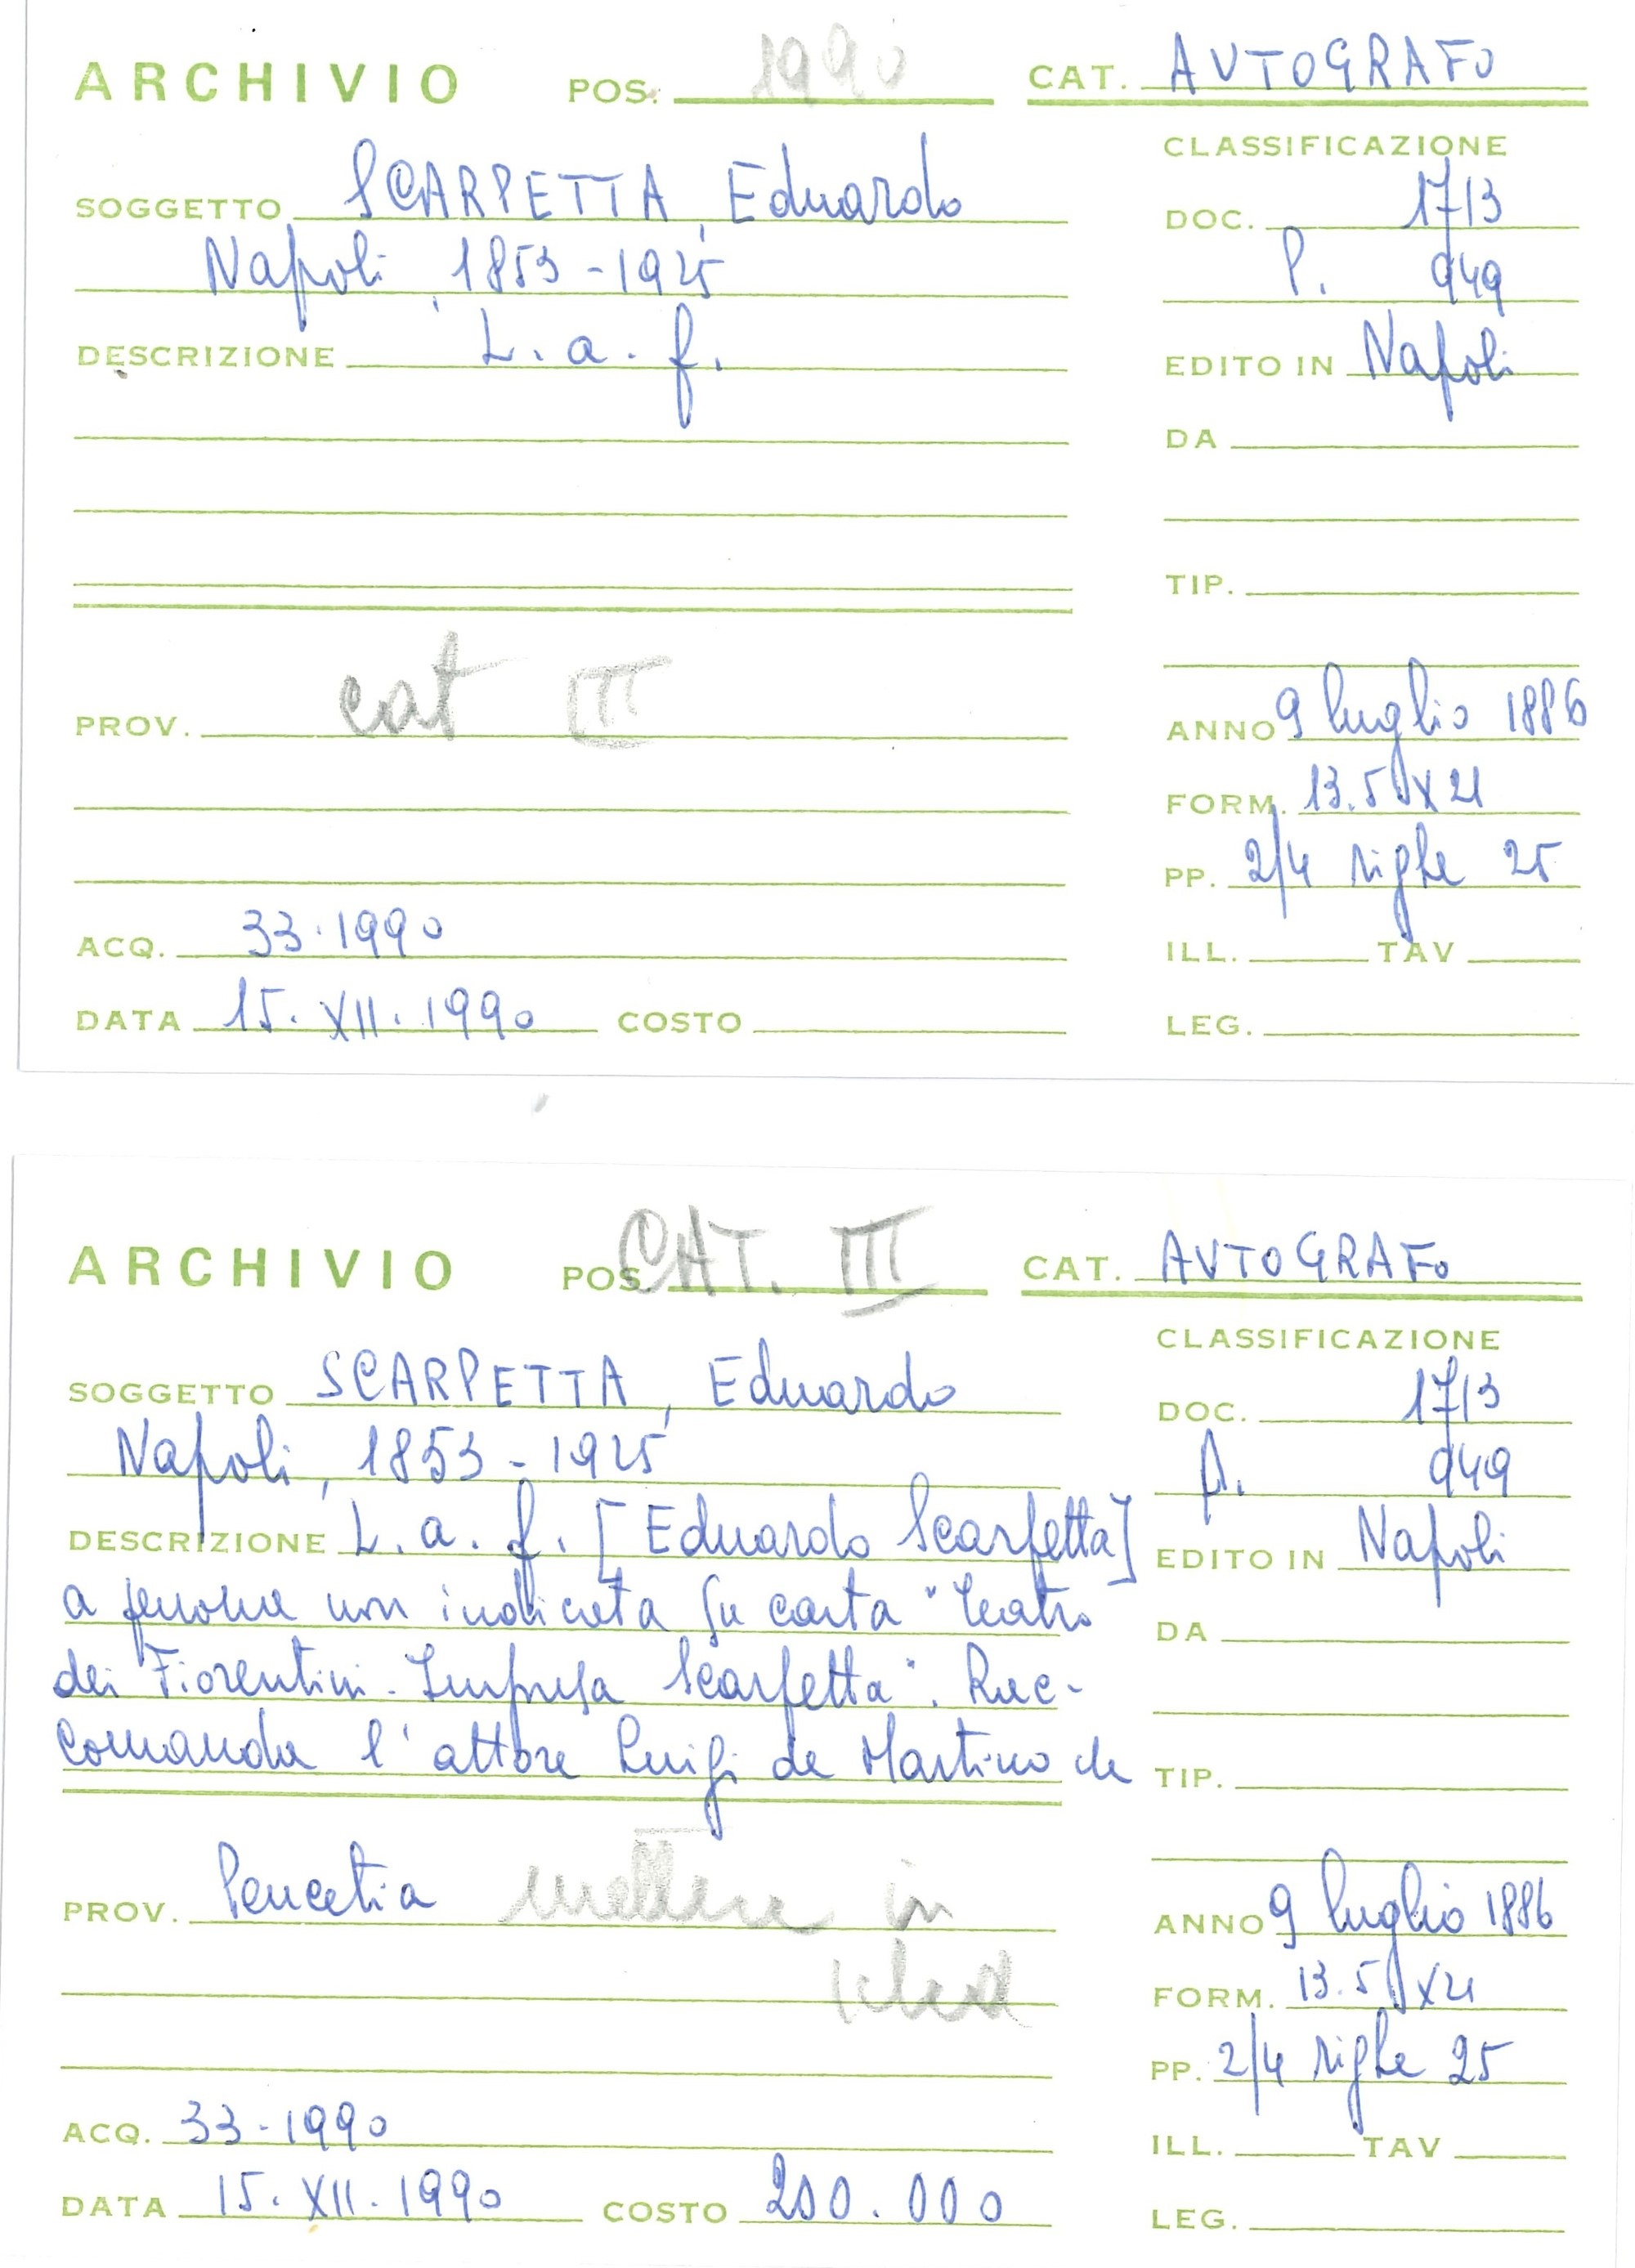 ARCHIVIO POS. 1990 CAT. AUTOGRAFO
CLASSIFICAZIONE
SOGGETTO SCARPETTA, Eduardo
DOC. 1713
Napoli, 1853-1925
P. 949
DESCRIZIONE L. a. f.
EDITO IN Napoli
DA
TIP.
PROV. cat III
ANNO 9 luglio 1886
FORM. 13.5 x 21
PP. 2/4 righe 25
ACQ. 33.1990
ILL. TAV
DATA 15. XII. 1990 COSTO
LEG.
ARCHIVIO POS. CAT. III CAT. AUTOGRAFO
CLASSIFICAZIONE
SOGGETTO SCARPETTA, Eduardo
DOC. 1713
Napoli, 1853-1925
A. 949
DESCRIZIONE L. a. f. [Eduardo Scarpetta]
EDITO IN Napoli
a persona non indicata su carta "Teatro
DA
dei Fiorentini - Impresa Scarpetta". Rac-
comanda l'attore Luigi de Martino che
TIP.
PROV. Peucetia mettere in
ANNO 9 luglio 1886
FORM. 13.5 x 21
PP. 2/4 righe 25
ACQ. 33-1990
ILL. TAV
DATA 15. XII. 1990 COSTO 200.000
LEG.